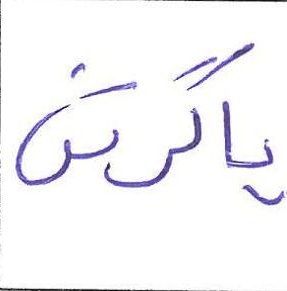 پاگرش